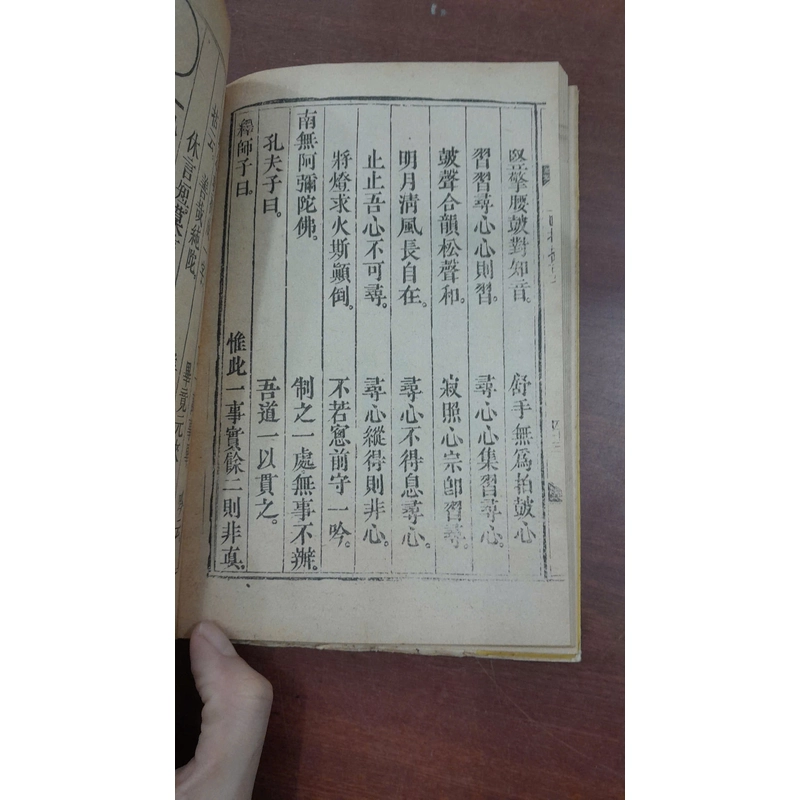 豎擎腰皷對知音。 舒手無爲拍皷心。
習習尋心心則習。 尋心心集習尋心。
皷聲合韻松聲和。 寂照心宗卽習尋。
明月清風長自在。 尋心不得息尋心。
止止吾心不可尋。 尋心縱得則非心。
將燈求火斯顚倒。 不若窻前守一吟。
南無阿彌陀佛。 制之一處無事不辦。
孔夫子曰。 吾道一以貫之。
釋師子曰。 惟此一事實餘二則非真。
休言